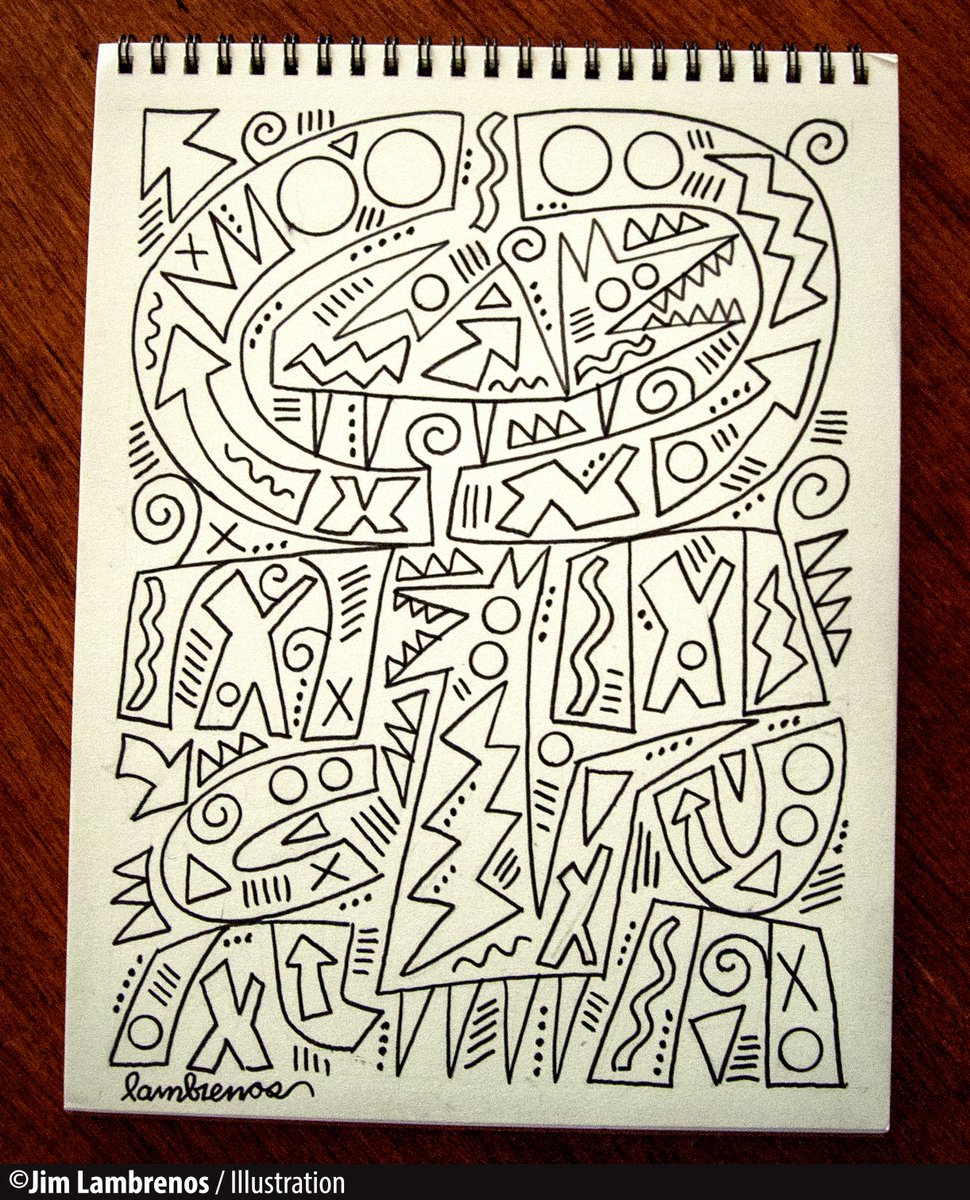 lambrenos
©Jim Lambrenos / Illustration